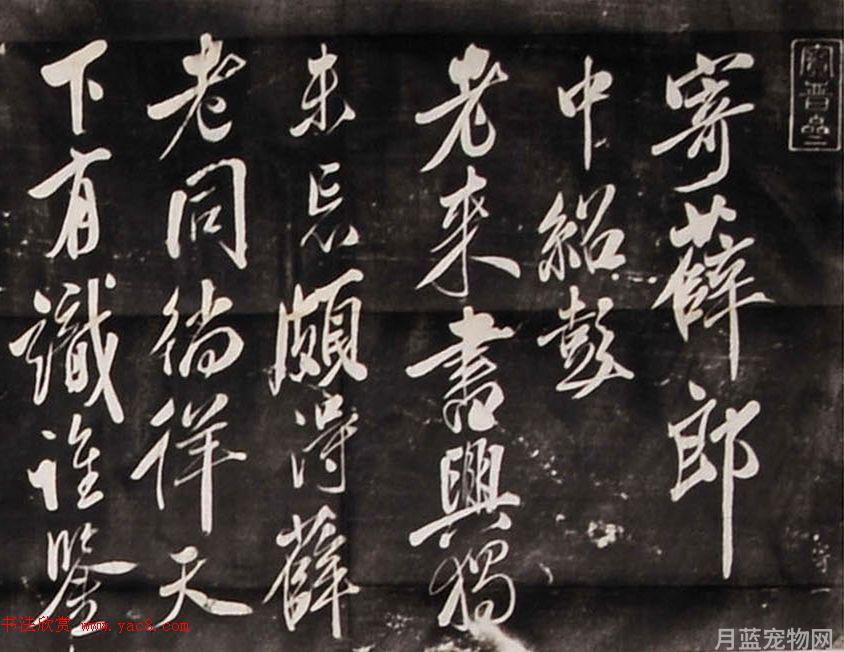 寄薛郎
中紹彭
老来書興獨
未忘頗得薛
老同徜徉天
下有識誰鑒
寶晋齋
二
书法欣赏 www.yac8.com
月蓝宠物网